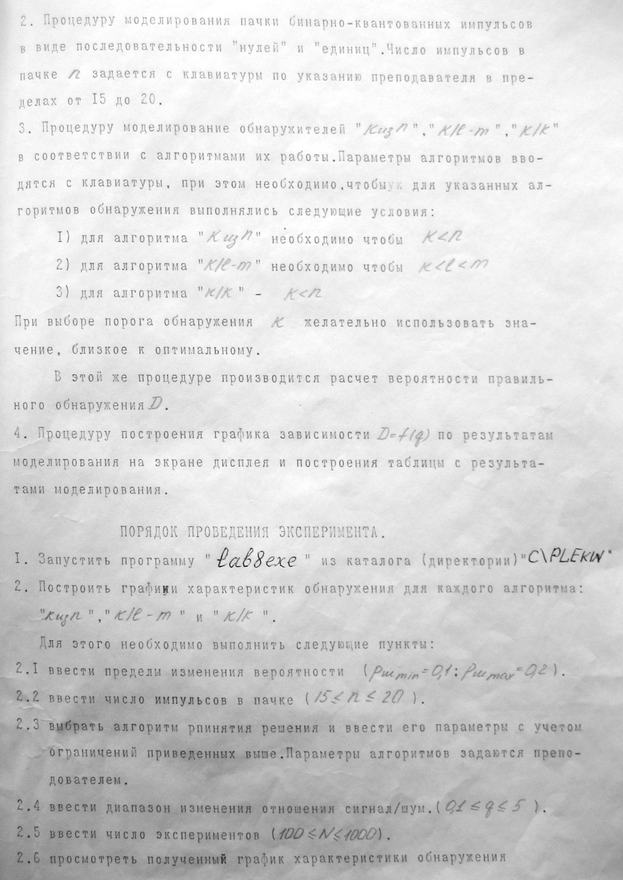 2. Процедуру моделирования пачки бинарно-квантованных импульсов
в виде последовательности "нулей" и "единиц".Число импульсов в
пачке n задается с клавиатуры по указанию преподавателя в пре-
делах от I5 до 20.
3. Процедуру моделирование обнаружителей "K из n","K/l-m","K/K"
в соответствии с алгоритмами их работы.Параметры алгоритмов вво-
дятся с клавиатуры, при этом необходимо,чтобы для указанных ал-
горитмов обнаружения выполнялись следующие условия:
I) для алгоритма "K из n" необходимо чтобы K<n
2) для алгоритма "K/l-m" необходимо чтобы K<l<m
3) для алгоритма "K/K" - K<n
При выборе порога обнаружения K желательно использовать зна-
чение, близкое к оптимальному.
В этой же процедуре производится расчет вероятности правиль-
ного обнаружения D.
4. Процедуру построения графика зависимости D=f(q) по результатам
моделирования на экране дисплея и построения таблицы с результа-
тами моделирования.
ПОРЯДОК ПРОВЕДЕНИЯ ЭКСПЕРИМЕНТА.
I. Запустить программу "lab8exe" из каталога (директории)"C\PLEKW"
2. Построить графики характеристик обнаружения для каждого алгоритма:
"K из n","K/l-m" и "K/K".
Для этого необходимо выполнить следующие пункты:
2.I ввести пределы изменения вероятности (Pш min=0,1; Pш max=0,2).
2.2 ввести число импульсов в пачке (15≤n≤20).
2.3 выбрать алгоритм рпинятия решения и ввести его параметры с учетом
ограничений приведенных выше.Параметры алгоритмов задаются препо-
дователем.
2.4 ввести диапазон изменения отношения сигнал/шум.(0,1≤q≤5).
2.5 ввести число экспериментов (100≤N≤1000).
2.6 просмотреть полученный график характеристики обнаружения